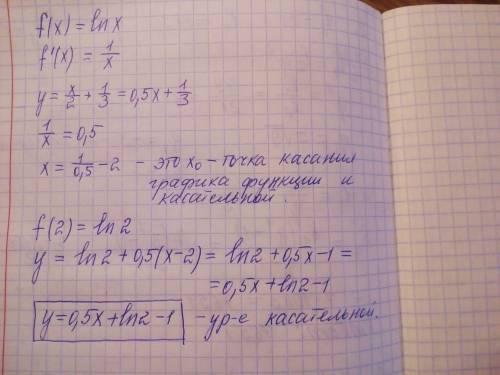 f(x) = ln x
f'(x) = 1/x
y = x/2 + 1/3 = 0,5x + 1/3
1/x = 0,5
x = 1/0,5 - 2 - это x₀ - точка касания
графика функции и
касательной.
f(2) = ln 2
y = ln2 + 0,5(x-2) = ln2 + 0,5x - 1 =
= 0,5x + ln2 - 1
y = 0,5x + ln2 - 1 - ур-е касательной.